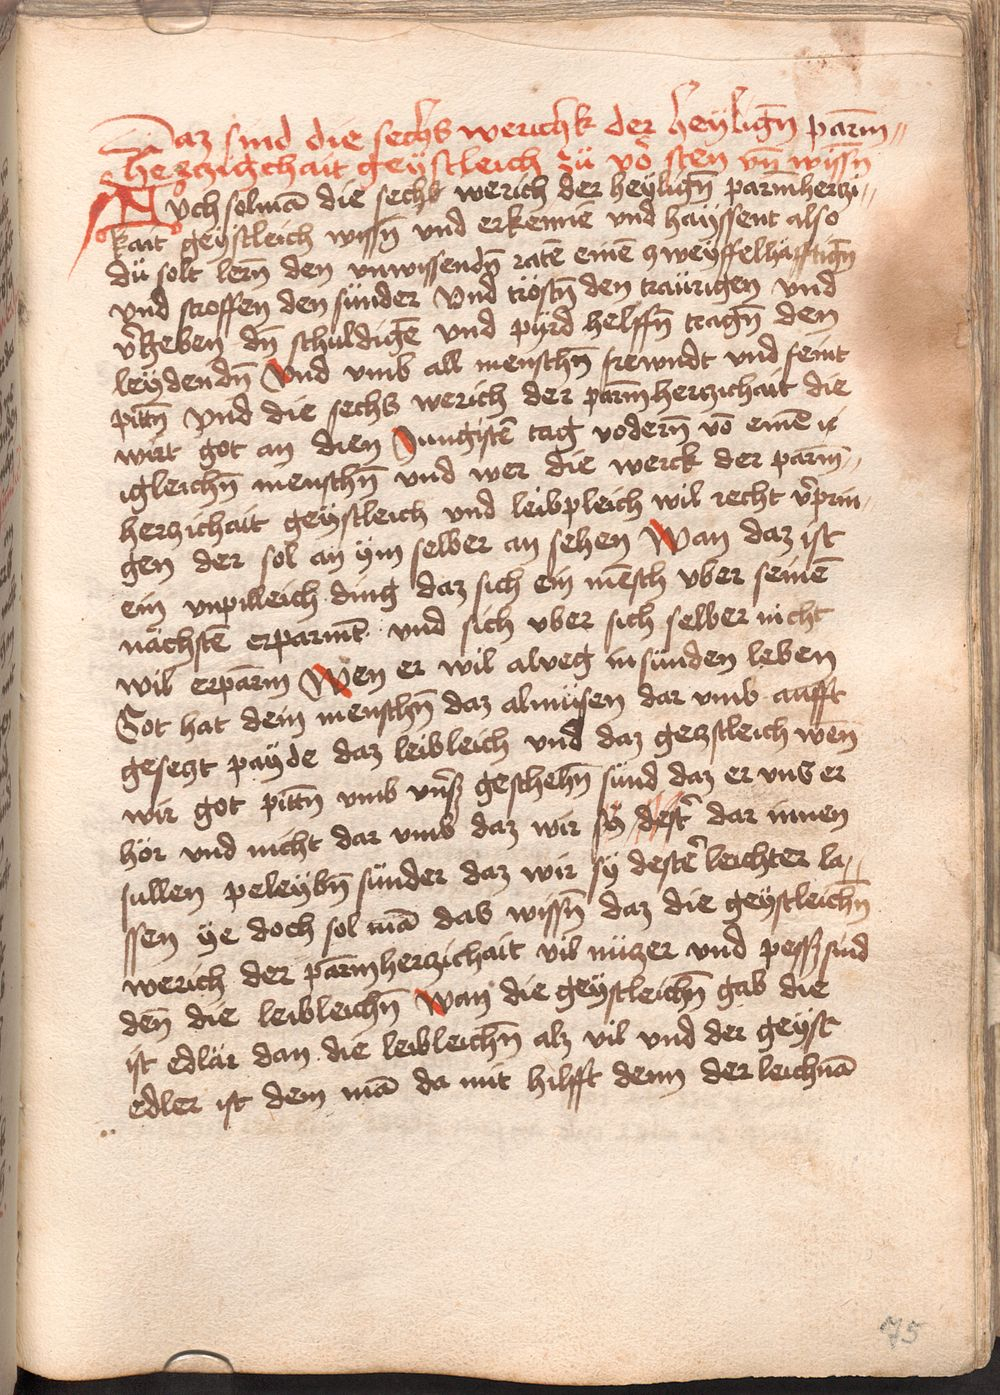 Daz sind die sechs werichk der heyligñ parm̄⸗
herczigchait geystleich zů vō sten vñ wissñ
Auch sol mā die sechß werich der heyligñ parmherczi⸗
kait geystleich wissñ vnd erkennē vnd hayssent also
dů solt lerñ den vnwissendñ ratē einē zweyffelhafftigñ
vnd stroffen den sünder Vnd tröstñ den traürigen vnd
v̄geben dñ schuldigē vnd pürd helffñ tragñ den
leydendñ Vnd vmb all menschñ frewndt vnd feint
pittñ Vnd die sechs werich der parm̄herczichait die
wirt got an dien Jungistē tag vodern̄ vō einē ie
igleichñ menschñ vnd wer die werck der parm̄⸗
herczichait geystleich vnd leibpleich wil recht v̄prin⸗
gen der sol an ÿm selber an sehen Wan daz ist
ein vnpilleich ding daz sich ein mēsch vber seinē
nächstē erparmt vnd sich vber sich selber nicht
wil erparm̄ Wen er wil alveg in sünden leben
Got hat dem menschñ daz almůsen dar vmb aufft
geseczt payde daz leibleich vnd daz geistleich wen̄
wir got pittñ vmb vn̄ß geschehñ sünd daz er vns er
hör vnd nicht dar vmb daz wir sÿ dest̄ dar innen
sullen peleybñ sünder daz wir sÿ destē leichter la⸗
ssen ÿe doch sol mā das wissñ daz die geystleichñ
werich der parm̄herczichait vil nüczer vnd pesß sind
den̄ die leibleichñ Wan die geystleichñ gab die
ist edlär dan die leibleichñ alz vil vnd der geyst
edler ist dem mā da mit hilfft denn der leichnā
75